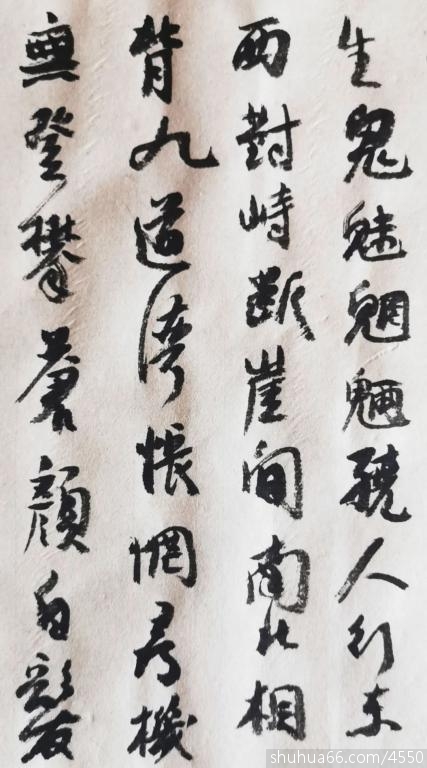 生鬼魅魍魎繞人行東
西對峙斷崖間南北相
背九道灣悵惘尋機
無登攀蒼顏白髮
shuhua66.com/4550